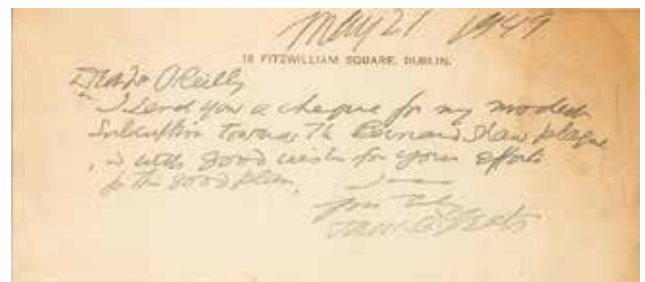 May 21 1949
18 FITZWILLIAM SQUARE, DUBLIN.
Dear Mr O'Reilly
I send you a cheque for my modest
Subscription towards the Bernard Shaw plaque
, with good wishes for your efforts
for the good plan,
I am
yours truly
Jack B Yeats